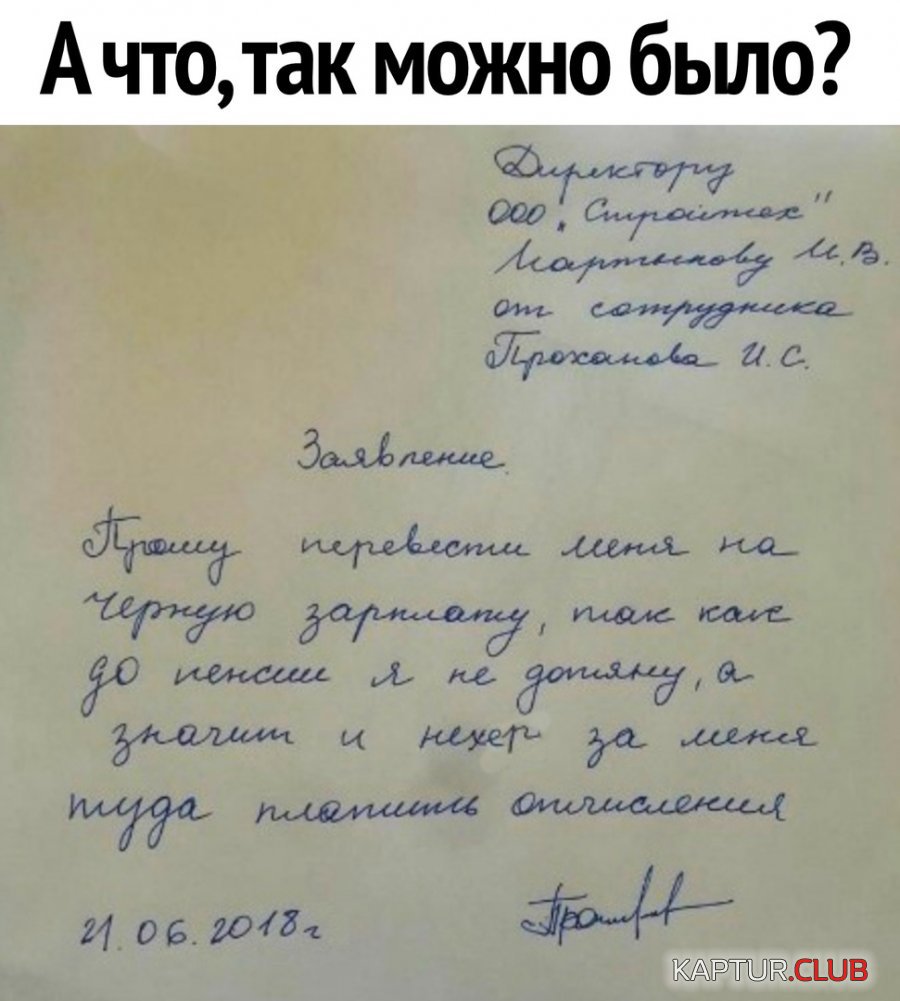 А что, так можно было?
Директору
ООО „Стройтех"
Мартынову И.В.
от сотрудника
Проханова И.С.
Заявление.
Прошу перевести меня на
черную зарплату, так как
до пенсии я не дотяну, а
значит и нехер за меня
туда платить отчисления
21.06.2018г
KAPTUR.CLUB